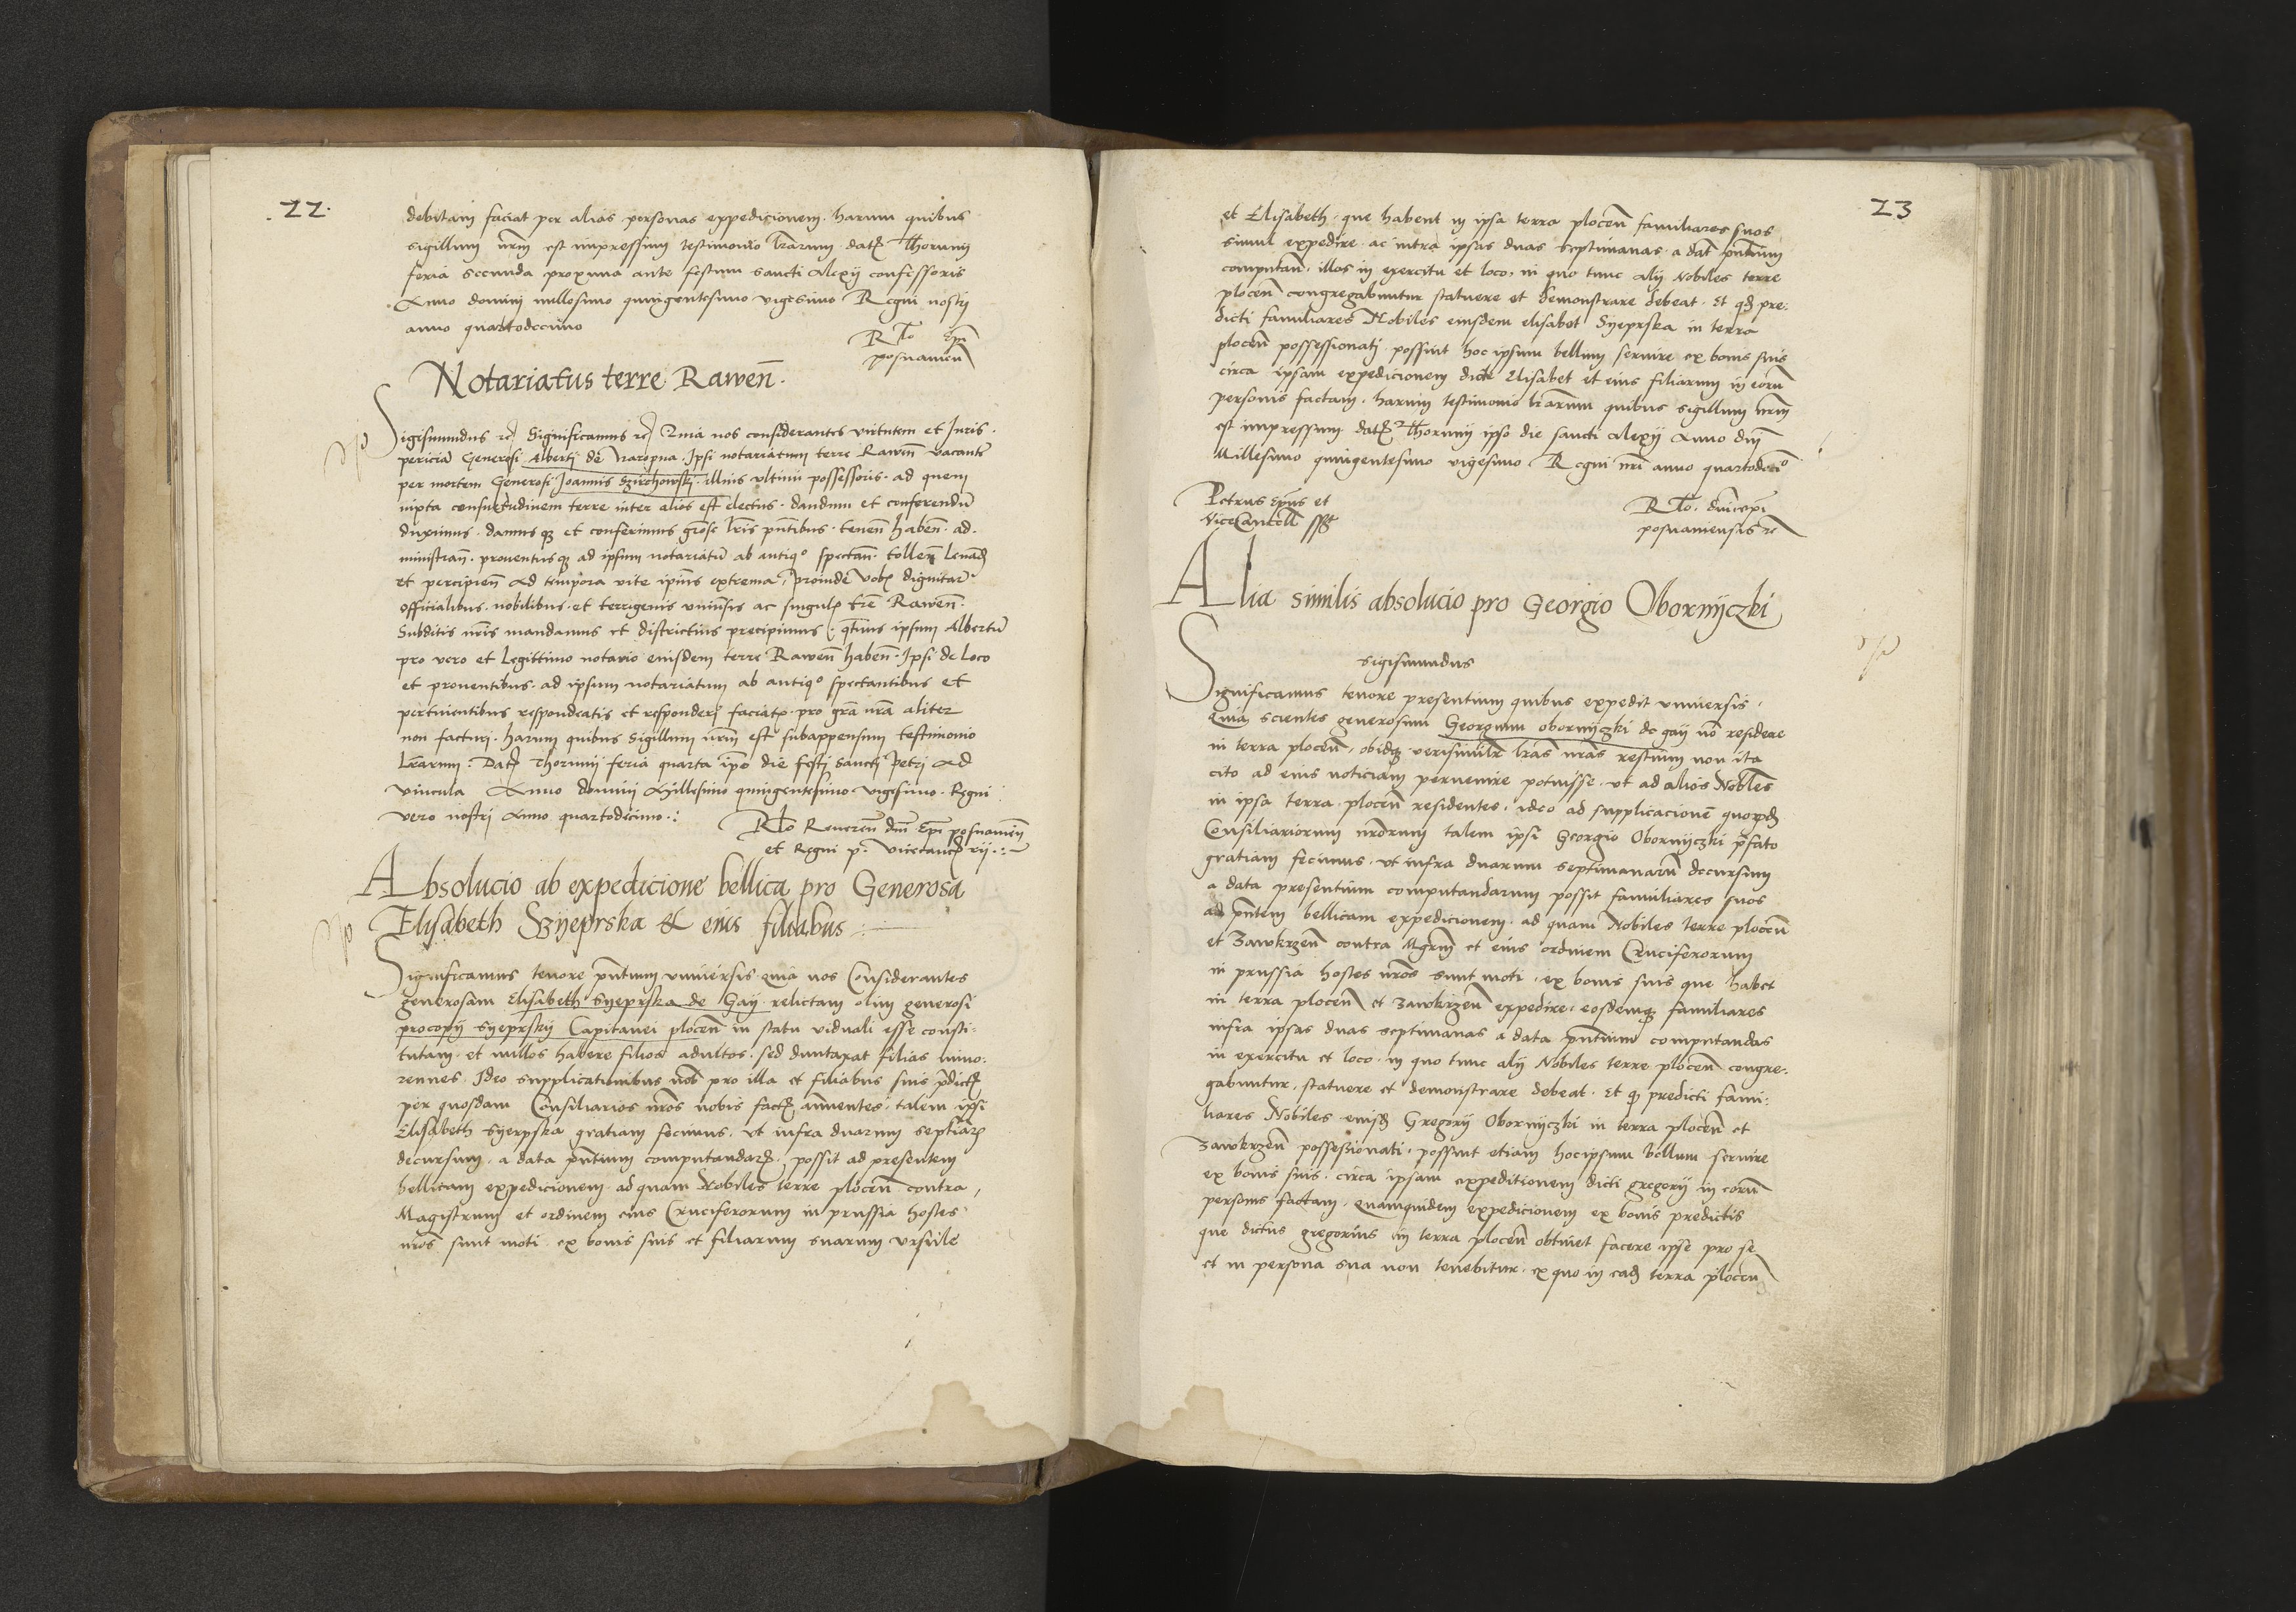 22.
debitam faciat per alias personas expedicionem. harum quibus
sigillum nrm̄ est impressum testimonio lrārum. dat̄ Thorunij
feria secunda proxima ante festum sancti Alexij confessoris
Anno domini millesimo quingentesimo vigesimo Regni nostrj
anno quartodecimo
Rlō Epī
posnanien̄
Notariatus terre Rawen̄.
Sigismundus rc̄ Significamus rc̄ Quia nos considerantes virtutem et Juris.
periciā Generosi Albertj de Naropna. Ipsi notariatum terre Rawen̄ vacantē
per mortem Generosi Joannis illius ultimi possessoris. ad quem
iuxta consuetudinem terre inter alios est electus. dandum et conferendū
duximus. damusq3 et conferimus grōse lrīs pn̄tibus. tenen̄ haben̄. ad.
ministran̄. proventusq3 ad ipsum notariatū ab antiqº spectan̄. tollen̄ levan̄d
et percipien̄ ad tempora vite ipīus extrema, proinde vobꝫ dignitar̄
officialibus. nobilibus. et terrigenis univēsis ac singulꝫ trē Rawen̄.
Subditis nrīs mandamus et districtius precipimus. qt̄inus ipsum Albertū
pro vero et legittimo notario eiusdem terre Rawen̄ haben̄. Ipsi de loco
et proventibus. ad ipsum notariatum ab antiqº spectantibus et
pertinentibus respondeatis et responderj faciatꝫ. pro grā nrā aliter
non facturj. harum quibus sigillum nrm̄ est subappensum testimonio
lrārum. Dat̄ Thorunij feria quarta ipō die festj sanctj Petrj ad
vincula Anno domini Millesimo quingentesimo. vigesimo. Regni
vero nostrj Anno quartodecimo.:
Rlō Reveren̄ dn̄i Epī posnanien̄
et Regni p. vicecanc̄
Absolucio ab expedicione bellica pro Generosa
Elisabeth Szyeprska et eius filiabus
Significamus tenore pn̄tium universis. quia nos Considerantes
generosam Elisabeth Syeprska de Gay. relictam olim generosi
procopij syeprskij Capitanei plocen̄ in statu viduali esse consti:
tutam. et nullos habere filios adultos. sed duntaxat filias mino:
rennes. Ideo supplicationibus nob̄ pro illa et filiabus suis p̄dictꝫ
per quosdam Consiliarios nrōs nobis factꝫ annuentes. talem ipsi
Elisabeth Syerpska gratiam fecimus. ut infra duarum septiār̄
decursum. a data pn̄tium computandarꝫ, possit ad presentem
bellicam expedicionem. ad quam Nobiles terre plocen̄ contra,
Magistrum et ordinem eius Cruciferorum in prussia hostes.
nrōs sunt moti ex bonis suis et filiarum suarum ursule
23
et Elisabeth. que habent in ipsa terra plocen̄ familiares suos
simul expedire. ac intra ipsas duas septimanas a dat̄ pn̄tium
computan̄. illos in exercitu et loco, in quo tunc alij Nobiles terre
plocen̄ congregabuntur statuere et demonstrare debeat. Et qd̄ pre:
dicti familiares Nobiles eiusdem elisabet Syeprska in terra
plocen̄ possessionatj. possint hoc ipsum bellum servire ex bonis suis
circa ipsam expedicionem dicte Elisabet et eius filiarum in eorū
personis factam. harum testimonio lrārum quibus sigillum nrm̄
est impressum dat̄ Thorunij ipso die sancti Alexij Anno dn̄i
Millesimo quingentesimo vigesimo. Regni nrī anno quartodeciº
Petrus Epūs et
Vicecancell̄ sst̄
Rlō. dn̄i epī
posnaniensis rc̄
Alia similis absolucio pro Georgio Obornyczki
sigismundus
Significamus tenore presentium quibus expedit universis.
Quia scientes generosum Georgium obornyczki de gay nō residere
in terra plocen̄, obidq3 verisimilr̄ lrās nrās restium non ita
cito ad eius noticiam pervenire potuisse. ut ad alios Nobl̄es
in ipsa terra. plocen̄ residentes. ideo ad supplicacionē quorp̄d
Consiliariorum nrōrum talem ipsi Georgio Obornyczki p̄fato
gratiam fecimus. ut infra duarum septimanarū decursum
a data presentium computandarum possit familiares suos
ad pn̄tem bellicam expedicionem. ad quam Nobiles terre plocen̄
et Zawkrzen̄ contra Mgrm̄ et eius ordinem Cruciferorum
in prussia hostes nrōs sunt moti. ex bonis suis que habet
in terra plocen̄ et zawkrzen̄ expedire. eosdemq3 familiares
infra ipsas duas septimanas a data pn̄tium computandas
in exercitu et loco. in quo tunc alij Nobiles terre plocen̄ congre:
gabuntur. statuere et demonstrare debeat. Et qꝫ predicti fami:
liares Nobiles eiusd̄ Gregorij Obornyczki in terra plocen̄ et
Zawkrzen̄ possessionati. possint etiam hocipsum bellum servire
ex bonis suis. circa ipsam expeditionem dicti gregorij in eorū
personis factam. Quamquidem expedicionem ex bonis predictis
que dictus gregorius in terra plocen̄ obtinet facere ipse pro se
et in persona sua non tenebitur. ex quo in ead̄ terra plocen̄